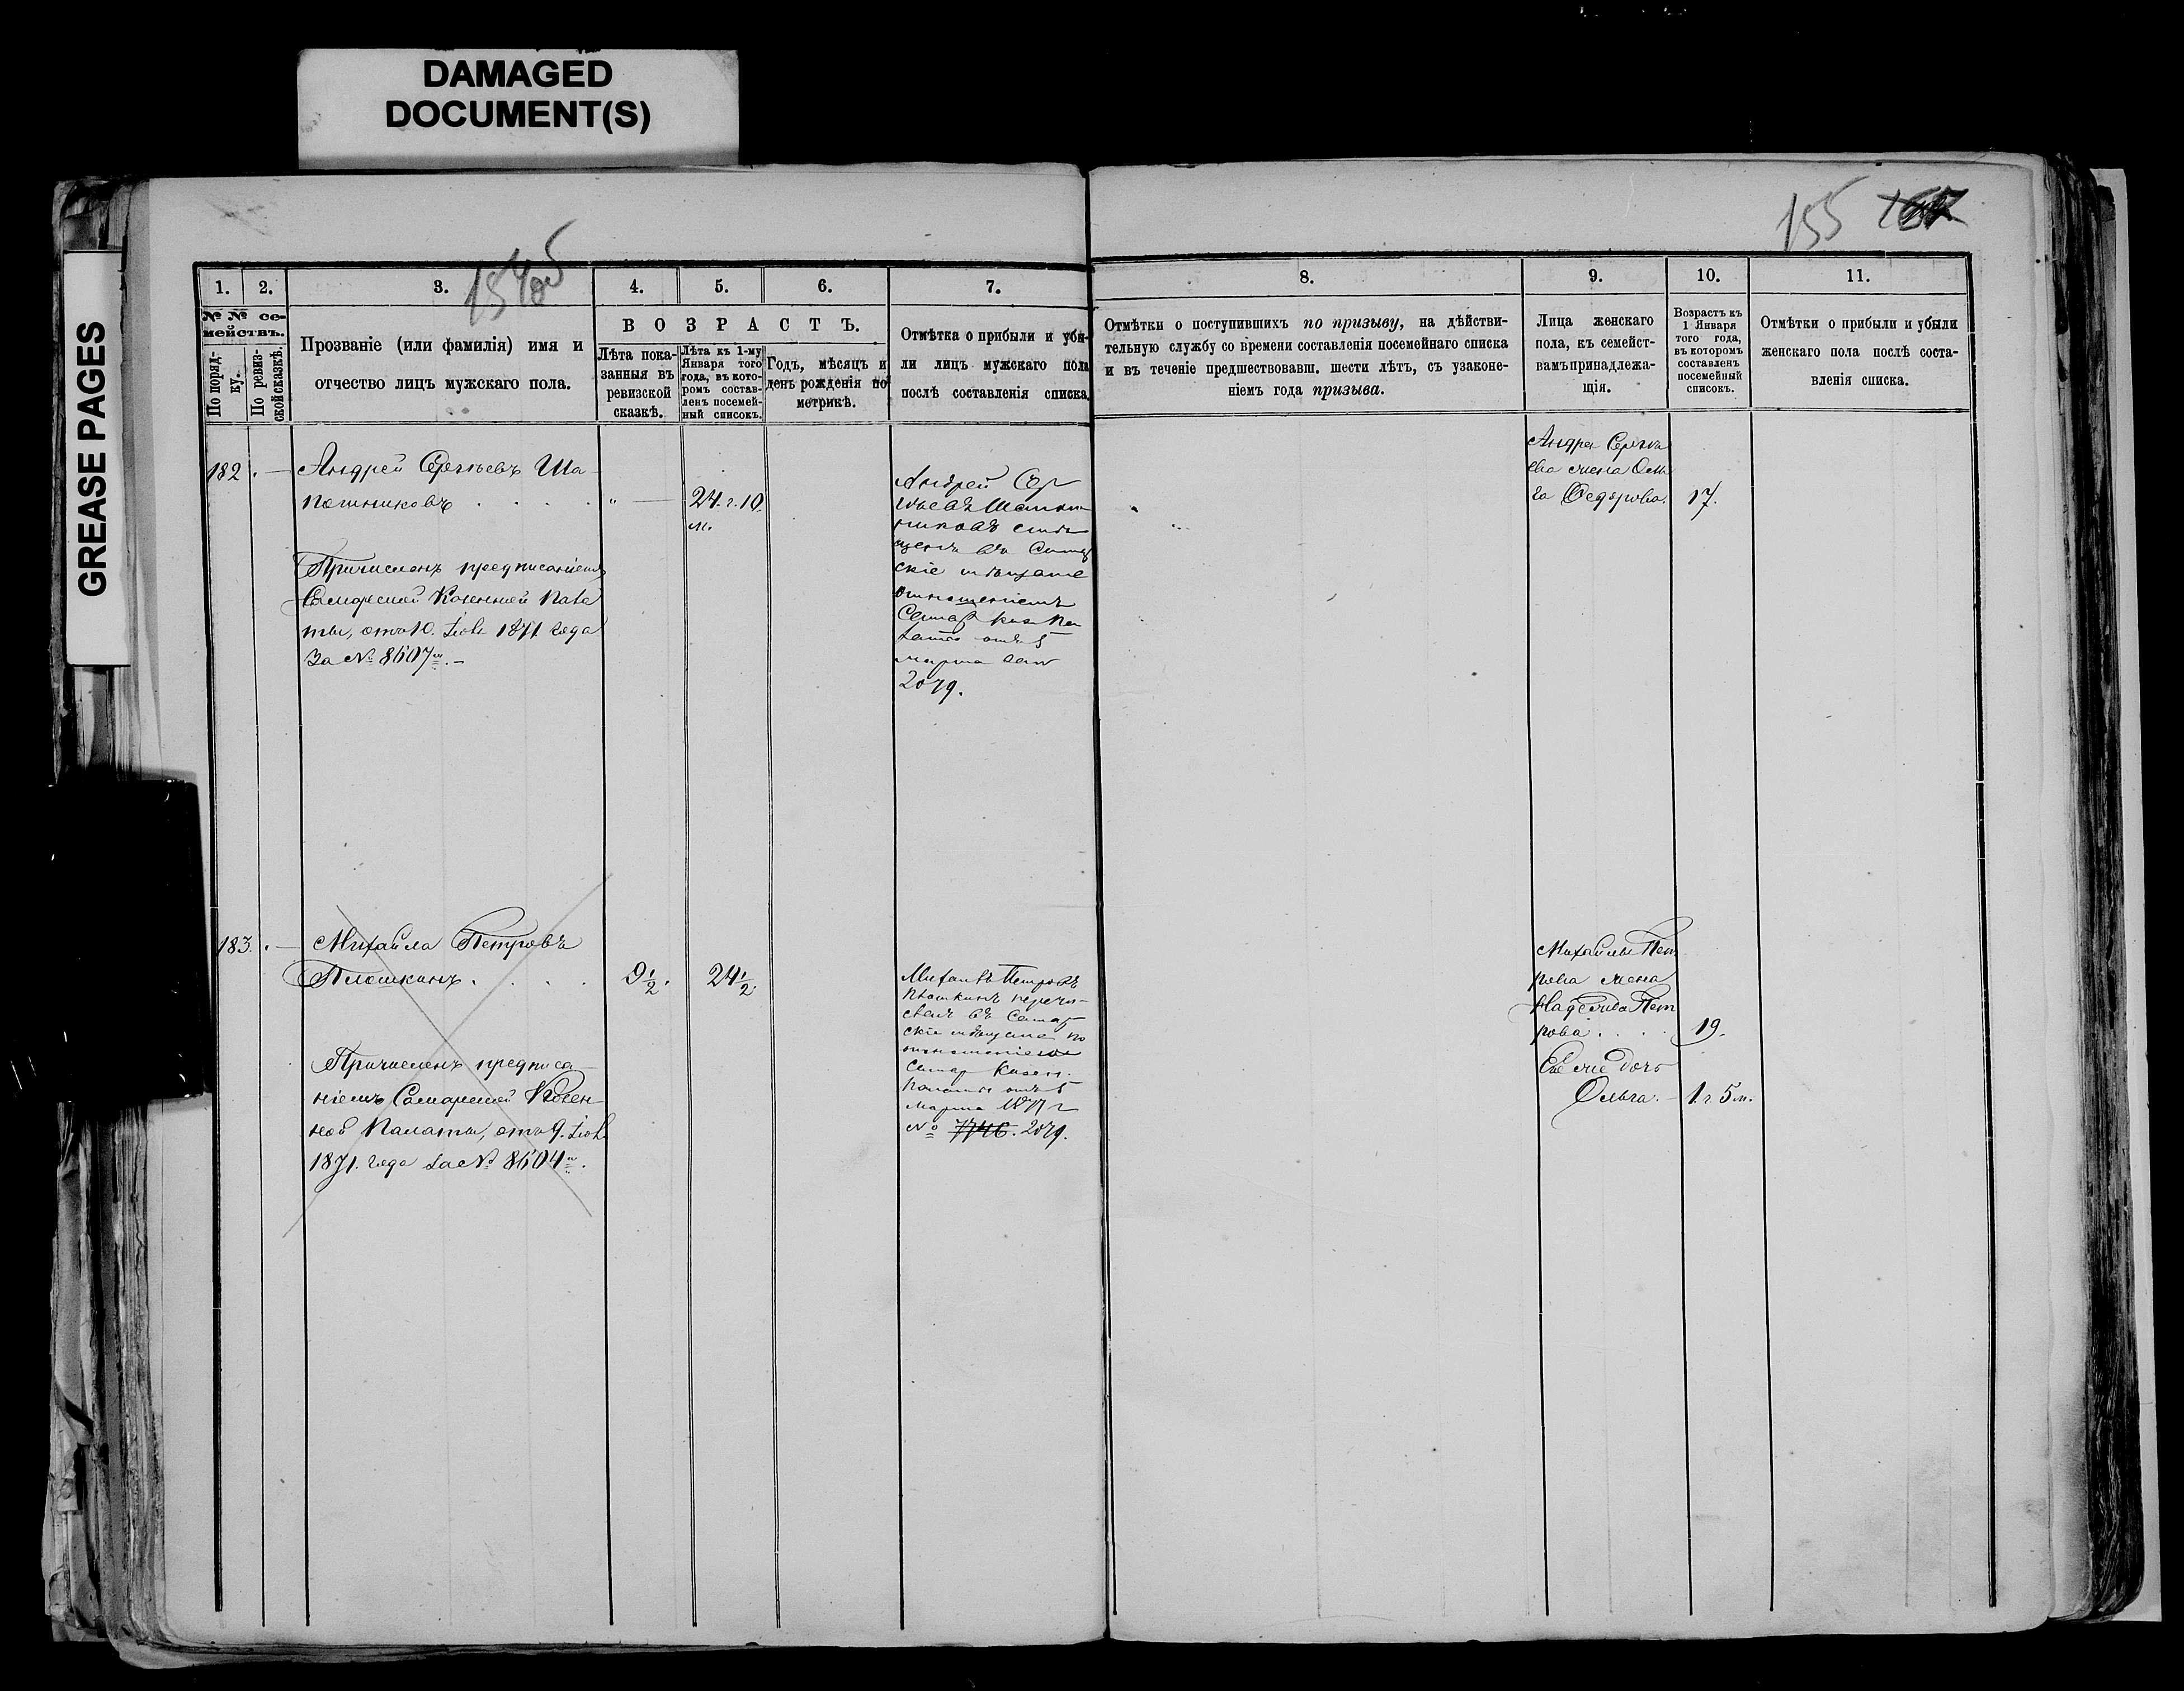 DAMAGED
DOCUMENT(S)
GREASE PAGES
155
1.
2.
3.
4.
5.
6.
7.
8.
9.
10.
11.
№ № се-
мействъ.
По поряд-
ку.
По ревиз-
ской сказкѣ.
Прозваніе (или фамилія) имя и
отчество лицъ мужскаго пола.
ВОЗРАСТЪ.
Лѣта пока-
занныя въ
ревизской
сказкѣ.
Лѣта къ 1-му
Января того
года, въ кото-
ромъ состав-
ленъ посемей-
ный списокъ.
Годъ, мѣсяцъ и
день рожденія по
метрикѣ.
Отмѣтка о прибыли и убы-
ли лицъ мужскаго пола
послѣ составленія списка.
Отмѣтки о поступившихъ по призыву, на дѣйстви-
тельную службу со времени составленія посемейнаго списка
и въ теченіе предшествовавш. шести лѣтъ, съ узаконе-
ніемъ года призыва.
Лица женскаго
пола, къ семейст-
вамъ принадлежа-
щія.
Возрастъ къ
1 Января
того года,
въ которомъ
составленъ
посемейный
списокъ.
Отмѣтки о прибыли и убыли
женскаго пола послѣ соста-
вленія списка.
182.
Андрей Сергѣевъ Ша-
пошниковъ
24. г. 10.
м.
Причисленъ предписаніемъ
Самарской Казенной Пала
ты, отъ 10. 1871 года
За № 8607.
Андрей Сер
гѣевъ Шапош
никовъ
въ Самар
скіе мѣщане
отношеніемъ
Самар Каз Па
латы отъ 5
марта
2079.
Андрея Сергѣ
ева жена Оль
га Федорова.
17.
183.
Михайла Петровъ
Плошкинъ
9 1/2.
24 1/2.
Причисленъ предписа-
ніемъ Самарской Казен-
ной Палаты, отъ 9.
1871. года за № 8604.
Михаилъ Петровъ
Плошкинъ перечи-
сленъ въ Самар
скіе мѣщане по
отношенію
Самар Казен.
Палаты отъ 5
Марта 1877 г
№ 7746. 2079.
Михайлы Пет
рова жена
Надежда Пет
рова
19.
Ево же дочь
Ольга.
1. г 5 м.